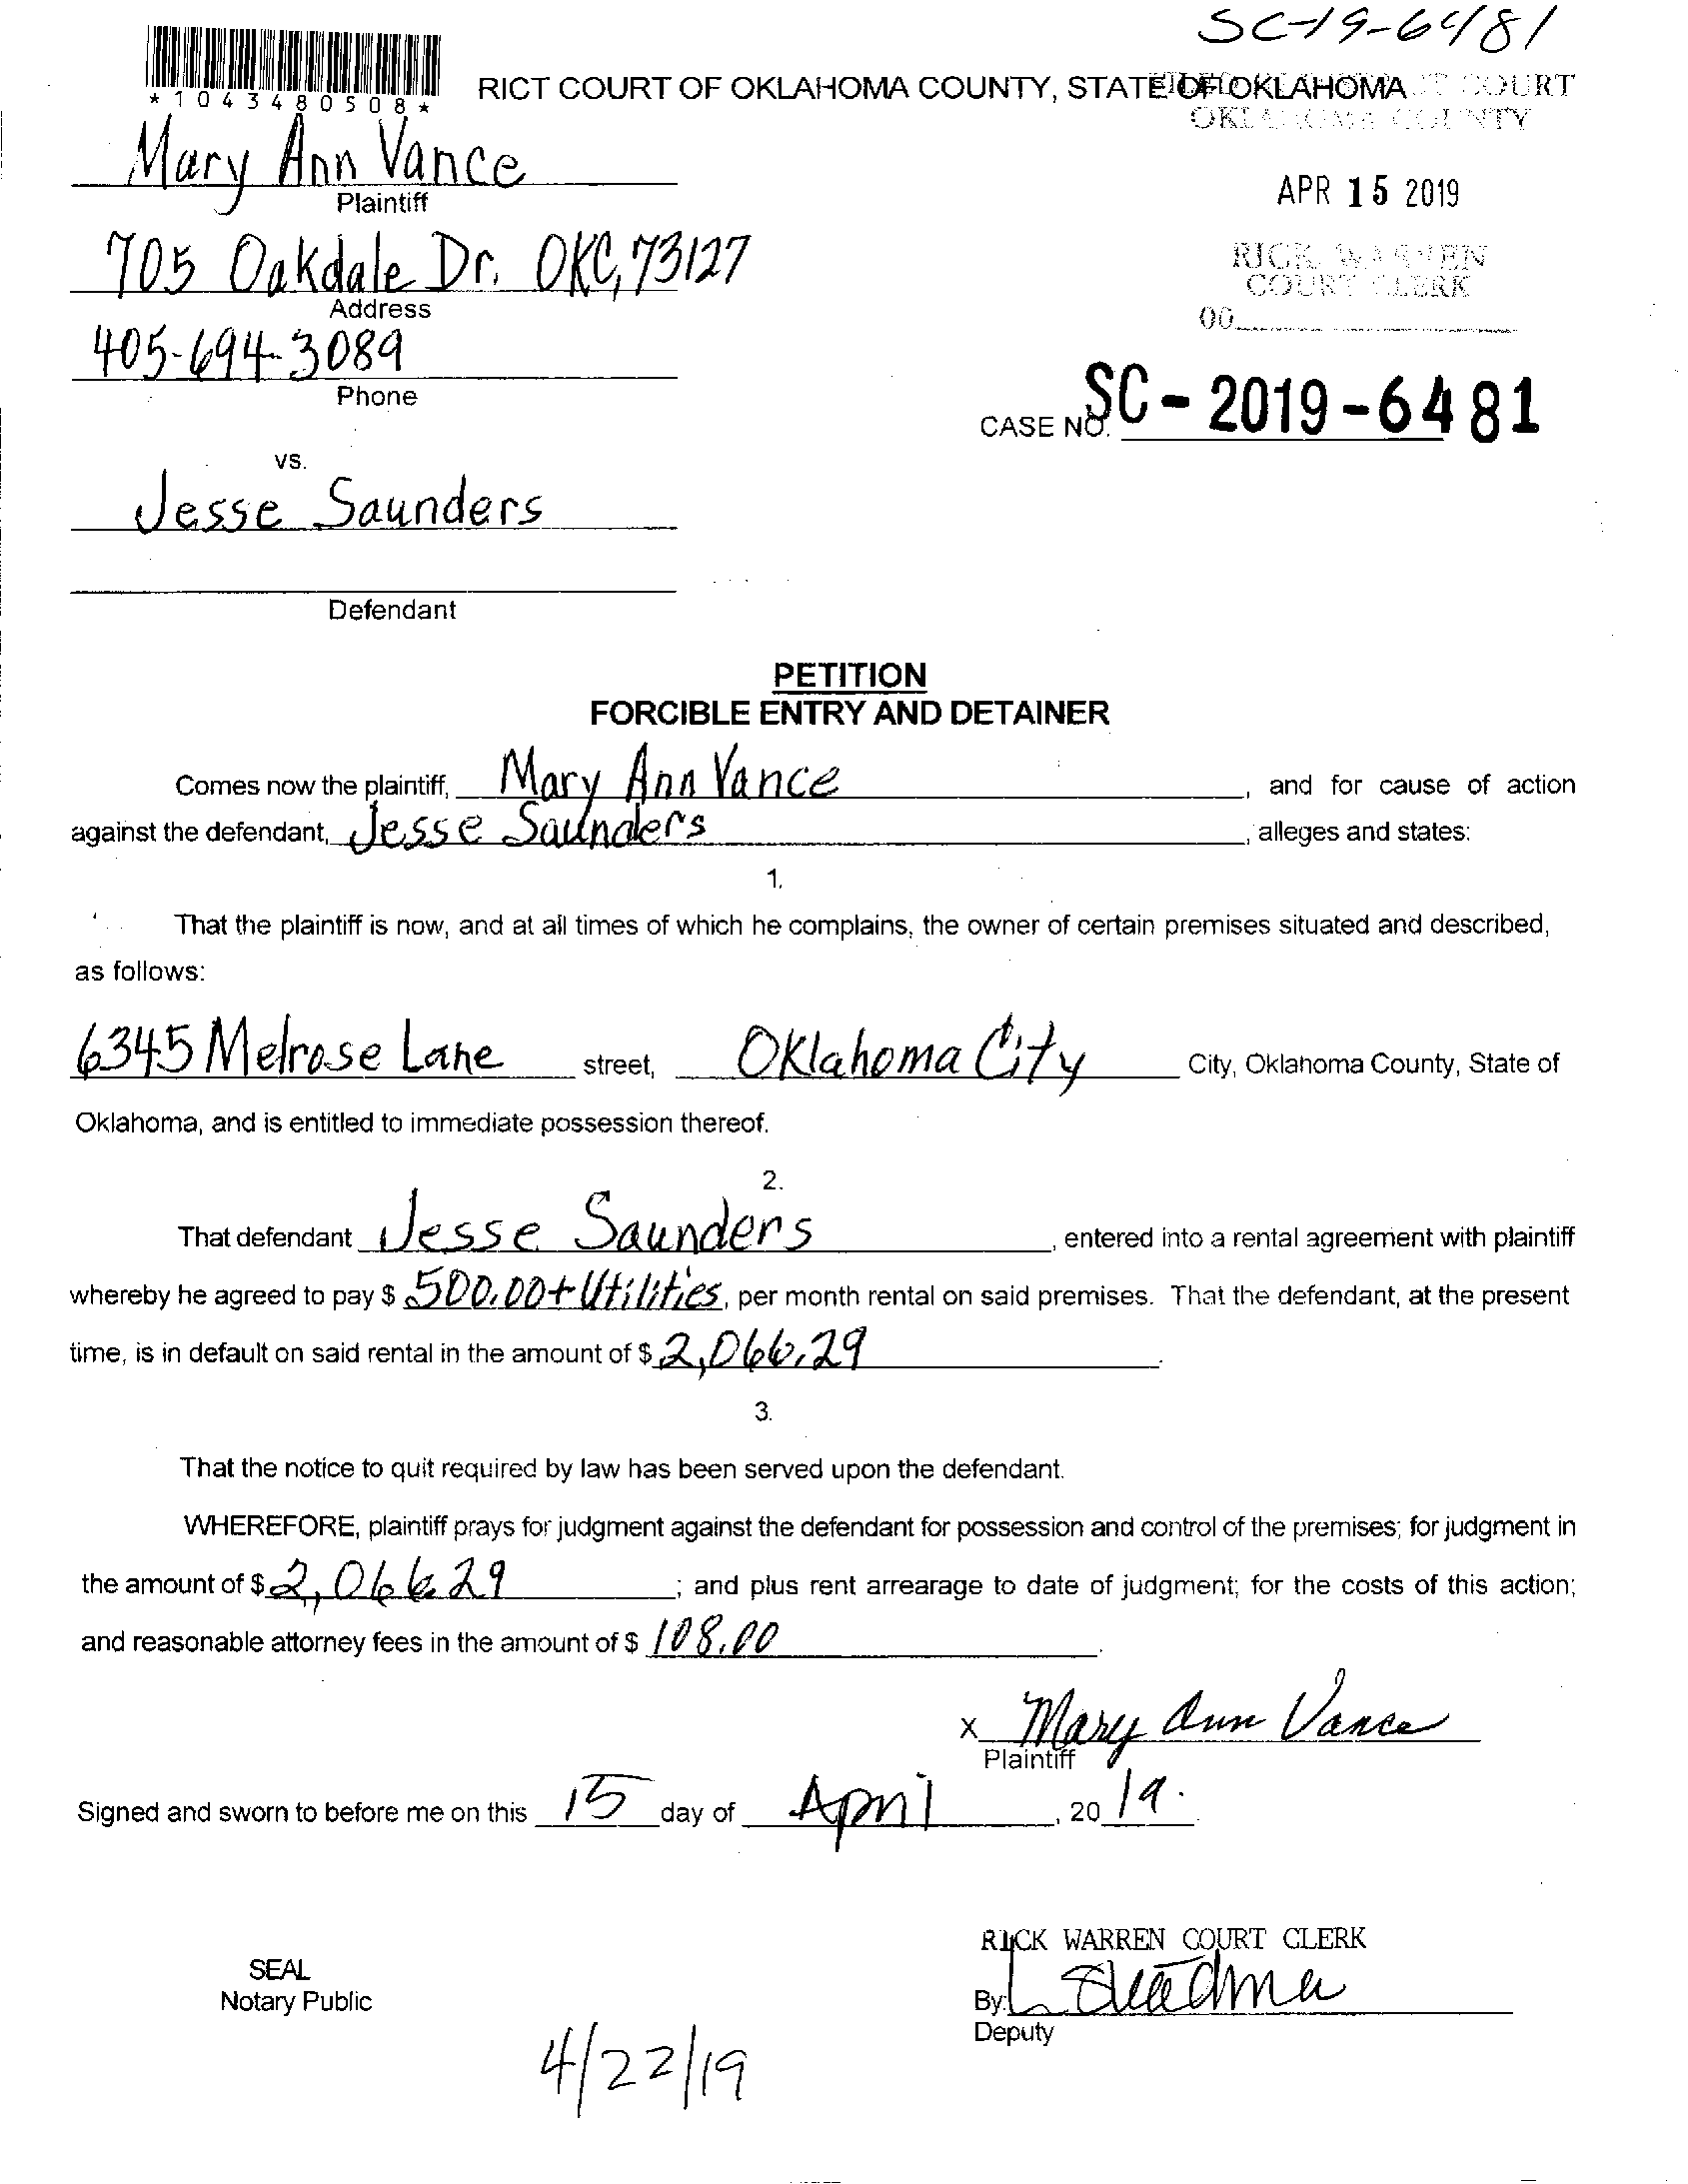 SC-19-6481
*1043480508*
RICT COURT OF OKLAHOMA COUNTY, STATE OF OKLAHOMA
COURT
OKLAHOMA COUNTY
Mary Ann Vance
Plaintiff
APR 15 2019
705 Oakdale Dr. OKC, 73127
Address
RICK WARREN
COURT CLERK
405-694-3089
Phone
CASE NO. SC-2019-6481
vs.
Jesse Saunders
Defendant
PETITION
FORCIBLE ENTRY AND DETAINER
Comes now the plaintiff, Mary Ann Vance, and for cause of action
against the defendant, Jesse Saunders, alleges and states:
1.
That the plaintiff is now, and at all times of which he complains, the owner of certain premises situated and described,
as follows:
6345 Melrose Lane street, Oklahoma City City, Oklahoma County, State of
Oklahoma, and is entitled to immediate possession thereof.
2.
That defendant Jesse Saunders, entered into a rental agreement with plaintiff
whereby he agreed to pay $ 500.00+Utilities, per month rental on said premises. That the defendant, at the present
time, is in default on said rental in the amount of $ 2,066.29.
3.
That the notice to quit required by law has been served upon the defendant.
WHEREFORE, plaintiff prays for judgment against the defendant for possession and control of the premises; for judgment in
the amount of $ 2,066.29; and plus rent arrearage to date of judgment; for the costs of this action;
and reasonable attorney fees in the amount of $ 108.00.
x Mary Ann Vance
Plaintiff
Signed and sworn to before me on this 15 day of April, 2019.
RICK WARREN COURT CLERK
SEAL
Notary Public
By:
Deputy
4/22/19